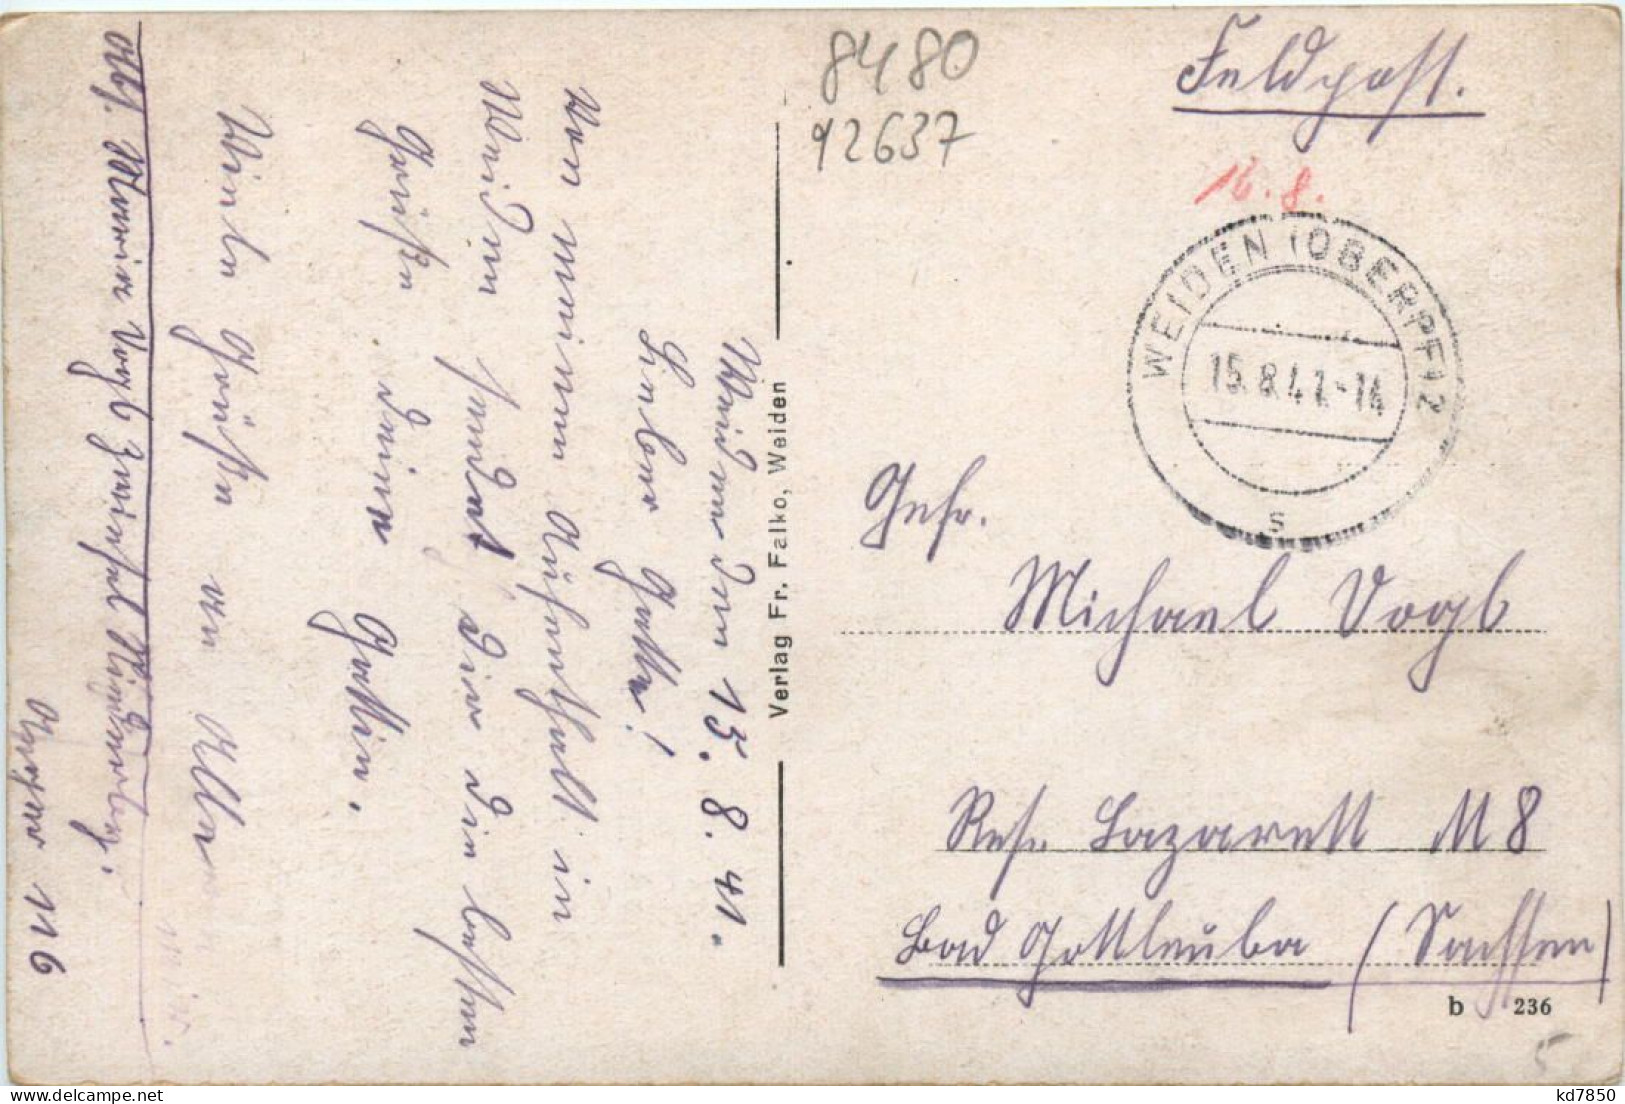 8480
92637
Feldpost.
16.8.
WEIDEN (OBERPF) 2
15.8.41-14
s
Gefr.
Michael Vogl
Res. Lazarett M 8
Bad Gottleuba (Sachsen)
b 236
5
Verlag Fr. Falko, Weiden
Weiden den 15. 8. 41.
Lieber Gatte!
Von meinem Aufenthalt in
Weiden sendet dir die besten
Grüße deine Gattin.
Viele Grüße an Alle
Abs. Maria Vogl
116
kd7850